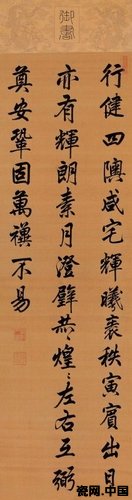 御書
行健四隩咸宅輝曦表秩寅賓出日
亦有輝朗素月澄璧共々煌々左右互弼
奠安鞏固萬禩不易
瓷网.中国